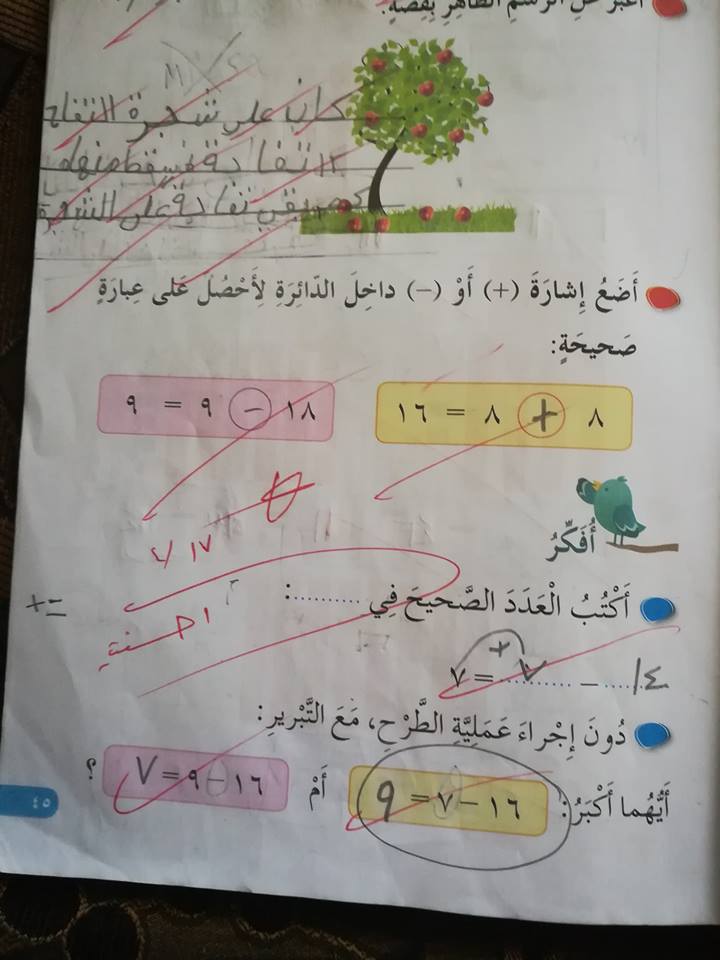 أُعَبِّرُ عَنِ الرَّسْمِ الظّاهِرِ بِقِصَّةٍ:
كان على شجرة التفاح
١٢ تفاحة
تفاحة على الشجرة
أَضَعُ إِشارَةَ (+) أَوْ (−) داخِلَ الدّائِرَةِ لِأَحْصُلَ عَلى عِبارَةٍ
صَحيحَةٍ:
٨ + ٨ = ١٦
١٨ − ٩ = ٩
أُفَكِّرُ
١٧ / ٧
أَكْتُبُ الْعَدَدَ الصَّحيحَ فِي .........:
احسنت
+ −
+
١٤ − ٧ = ٧
دُونَ إِجْراءِ عَمَلِيَّةِ الطَّرْحِ، مَعَ التَّبْريرِ:
أَيُّهُما أَكْبَرُ: ١٦ − ٧ = 9 أَمْ ١٦ − ٩ = ٧ ؟
٤٥